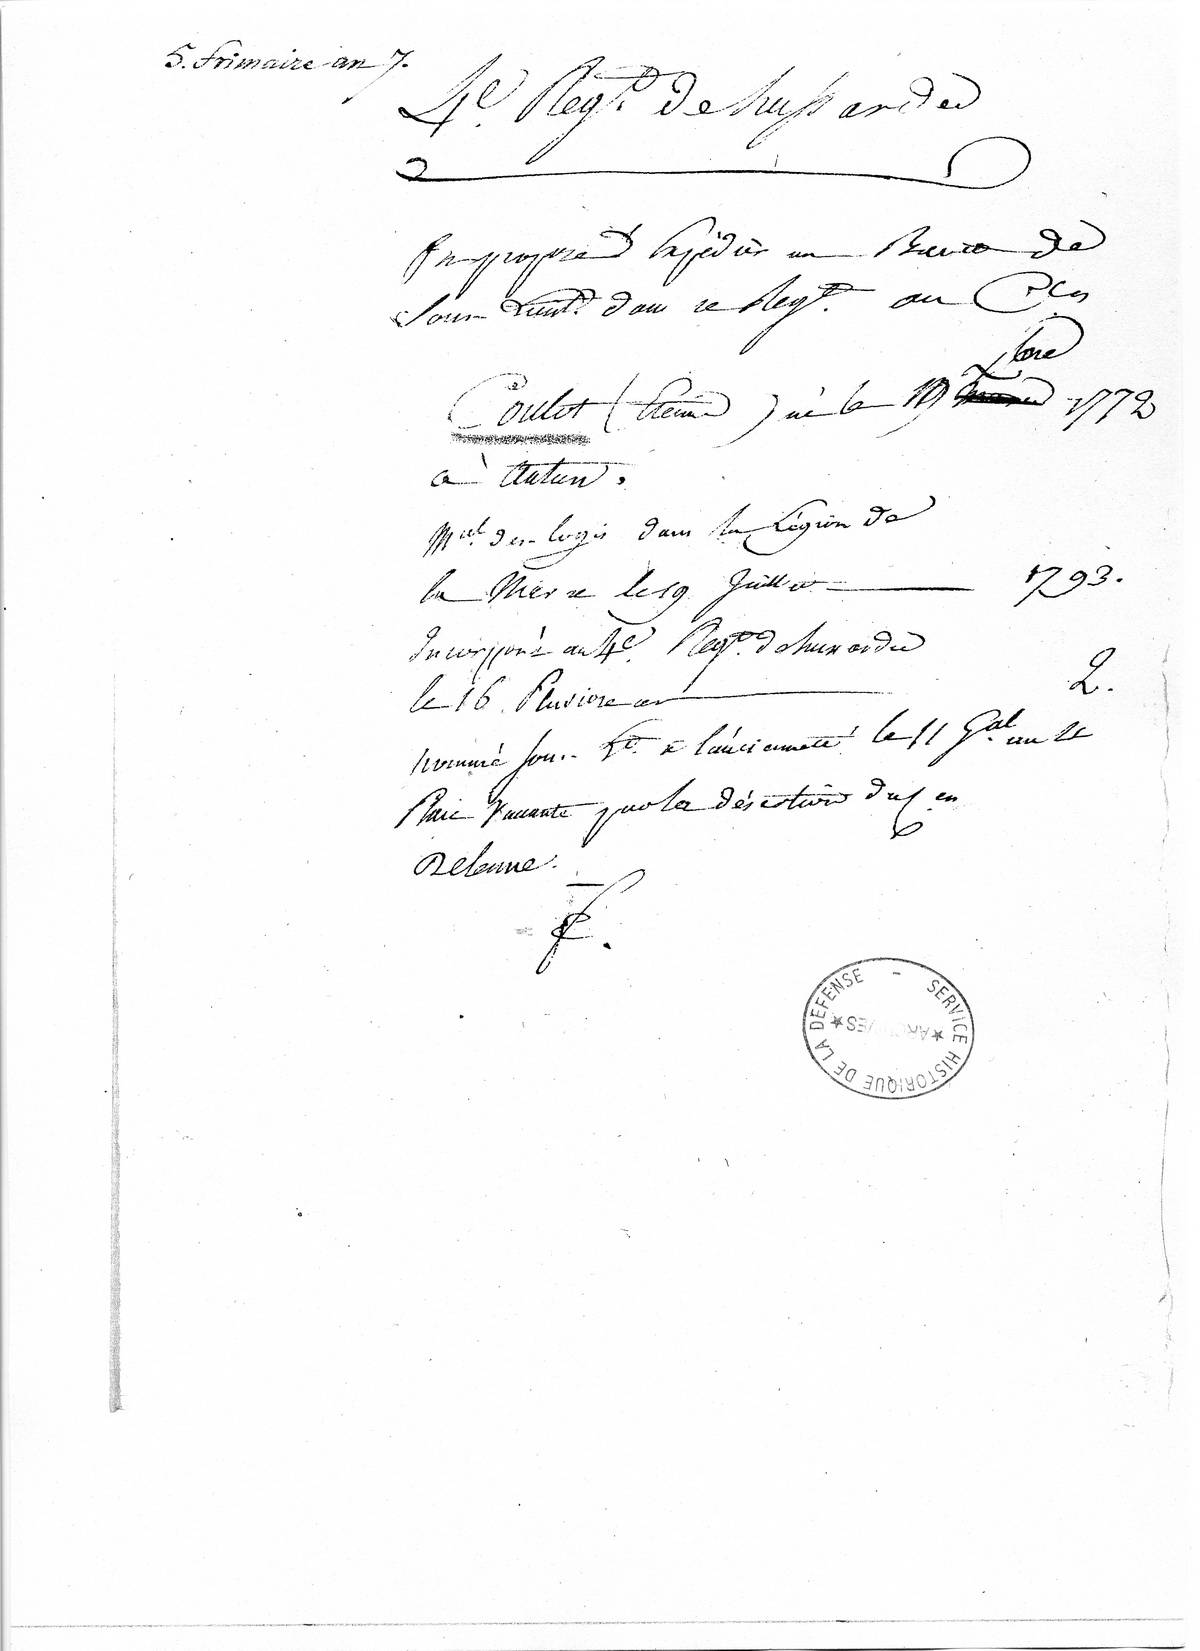 5. frimaire an 7.
4e. Regt. de hussardes
On propose d'Expédier un Brevet de
Sous-Lieut. dans ce Regt. au Cen
bre
Coulet (Etienne) né le 19 1772
à Autun.
Mal. des-logis dans la Légion de
la Mozelle le 19 Juillet 1793.
Incorporé au 4e. Regt. de hussardes
le 16 Pluviose an 2.
nommé sous-Lt. à l'ancienneté le 11 Gal. an 2
Place Vacante par la désertion du Cen
Delanne.
SERVICE HISTORIQUE DE LA DEFENSE -
★ARCHIVES★